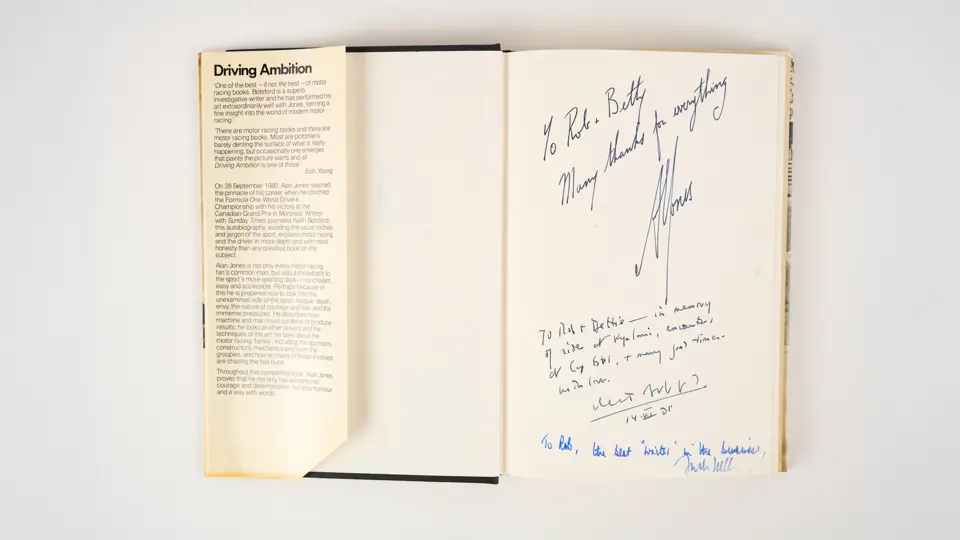 Driving Ambition
'One of the best – if not the best – of motor
racing books. Botsford is a superb
investigative writer and he has performed his
art extraordinarily well with Jones, forming a
fine insight into the world of modern motor
racing.'
'There are motor racing books and there are
motor racing books. Most are potboilers
barely denting the surface of what is really
happening, but occasionally one emerges
that paints the picture warts and all.
Driving Ambition is one of those'
Eoin Young
On 28 September 1980, Alan Jones reached
the pinnacle of his career when he clinched
the Formula One World Drivers
Championship with his victory to the
Canadian Grand Prix in Montreal. Written
with Sunday Times journalist Keith Botsford,
this autobiography, avoiding the usual clichés
and jargon of the sport, explains motor racing
and the driver in more depth and with more
honesty than any previous book on the
subject.
Alan Jones is not only every motor racing
fan's common man, but also a throwback to
the sport's more sporting days – nonchalant,
easy and accessible. Perhaps because of
this he is prepared now to look into the
unexamined side of the sport: fatigue, death,
envy, the nature of courage and fear, and the
immense pressures. He describes how
machine and man must combine to produce
results; he looks at other drivers and the
techniques of the art; he talks about the
motor racing 'family', including the sponsors,
constructors, mechanics and even the
groupies, and how so many of those involved
are chasing the fast buck.
Throughout this compelling book, Alan Jones
proves that he not only has exceptional
courage and determination, but also humour
and a way with words.
To Rob + Betty
Many thanks for everything
AJones
To Rob + Bettie — in memory
of ride at Kyalami, encounters
at Cap Estel, + many good times.
with love.
14 · VI 81
To Rob, the best "writer" in the business,